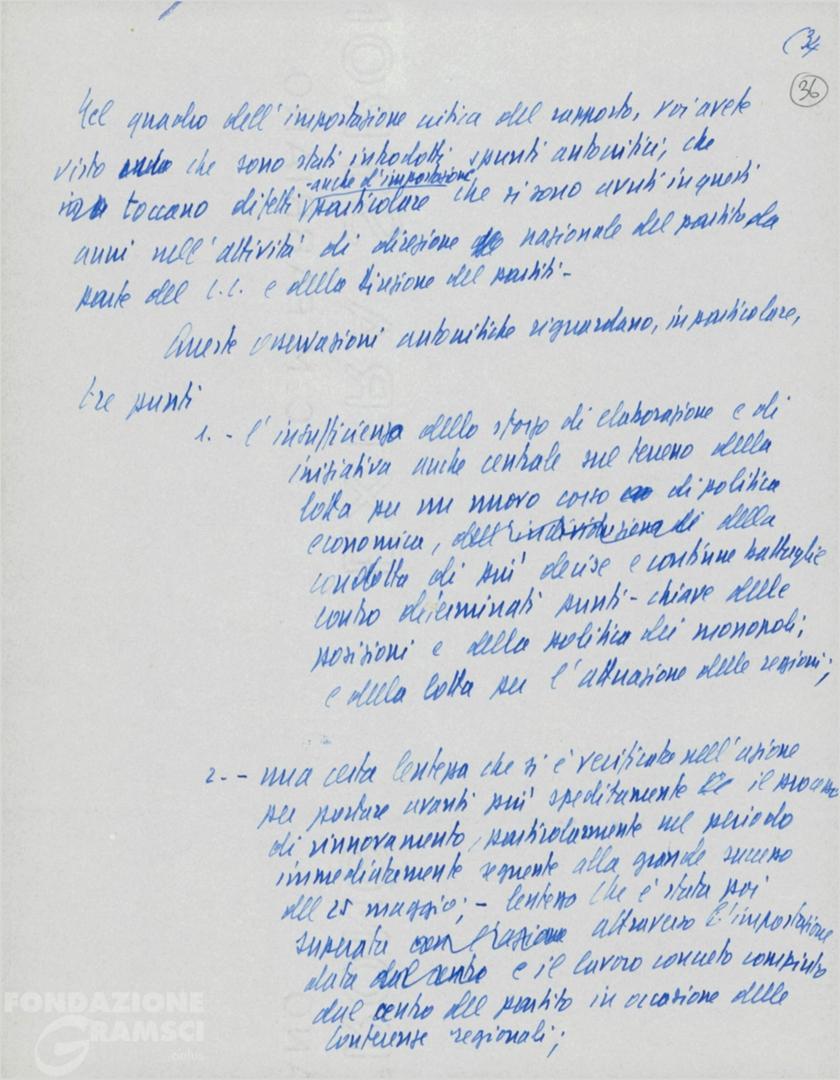 (34
36
Nel quadro dell'impostazione critica del rapporto, voi avete
visto che sono stati introdotti spunti autocritici, che
anche d'impostazione
toccano difetti particolare che si sono avuti in questi
anni nell'attività di direzione nazionale del partito da
parte del C.C. e della Direzione del partiti -
Queste osservazioni autocritiche riguardano, in particolare,
tre punti
1. - l'insufficienza dello sforzo di elaborazione e di
iniziativa anche centrale sul terreno della
lotta per un nuovo corso di politica
economica, dell'individuazione di della
condotta di più decise e continue battaglie
contro determinati punti-chiave delle
posizioni e della politica dei monopoli;
e della lotta per l'attuazione delle regioni;
2. - una certa lentezza che si è verificata nell'azione
per portare avanti più speditamente il processo
di rinnovamento, particolarmente nel periodo
immediatamente seguente alla grande successo
del 25 maggio; - lentezza che è stata poi
superata con l'azione attraverso l'impostazione
data dal centro e il lavoro concreto compiuto
dal centro del partito in occasione delle
Conferenze regionali;
FONDAZIONE
GRAMSCI
onlus